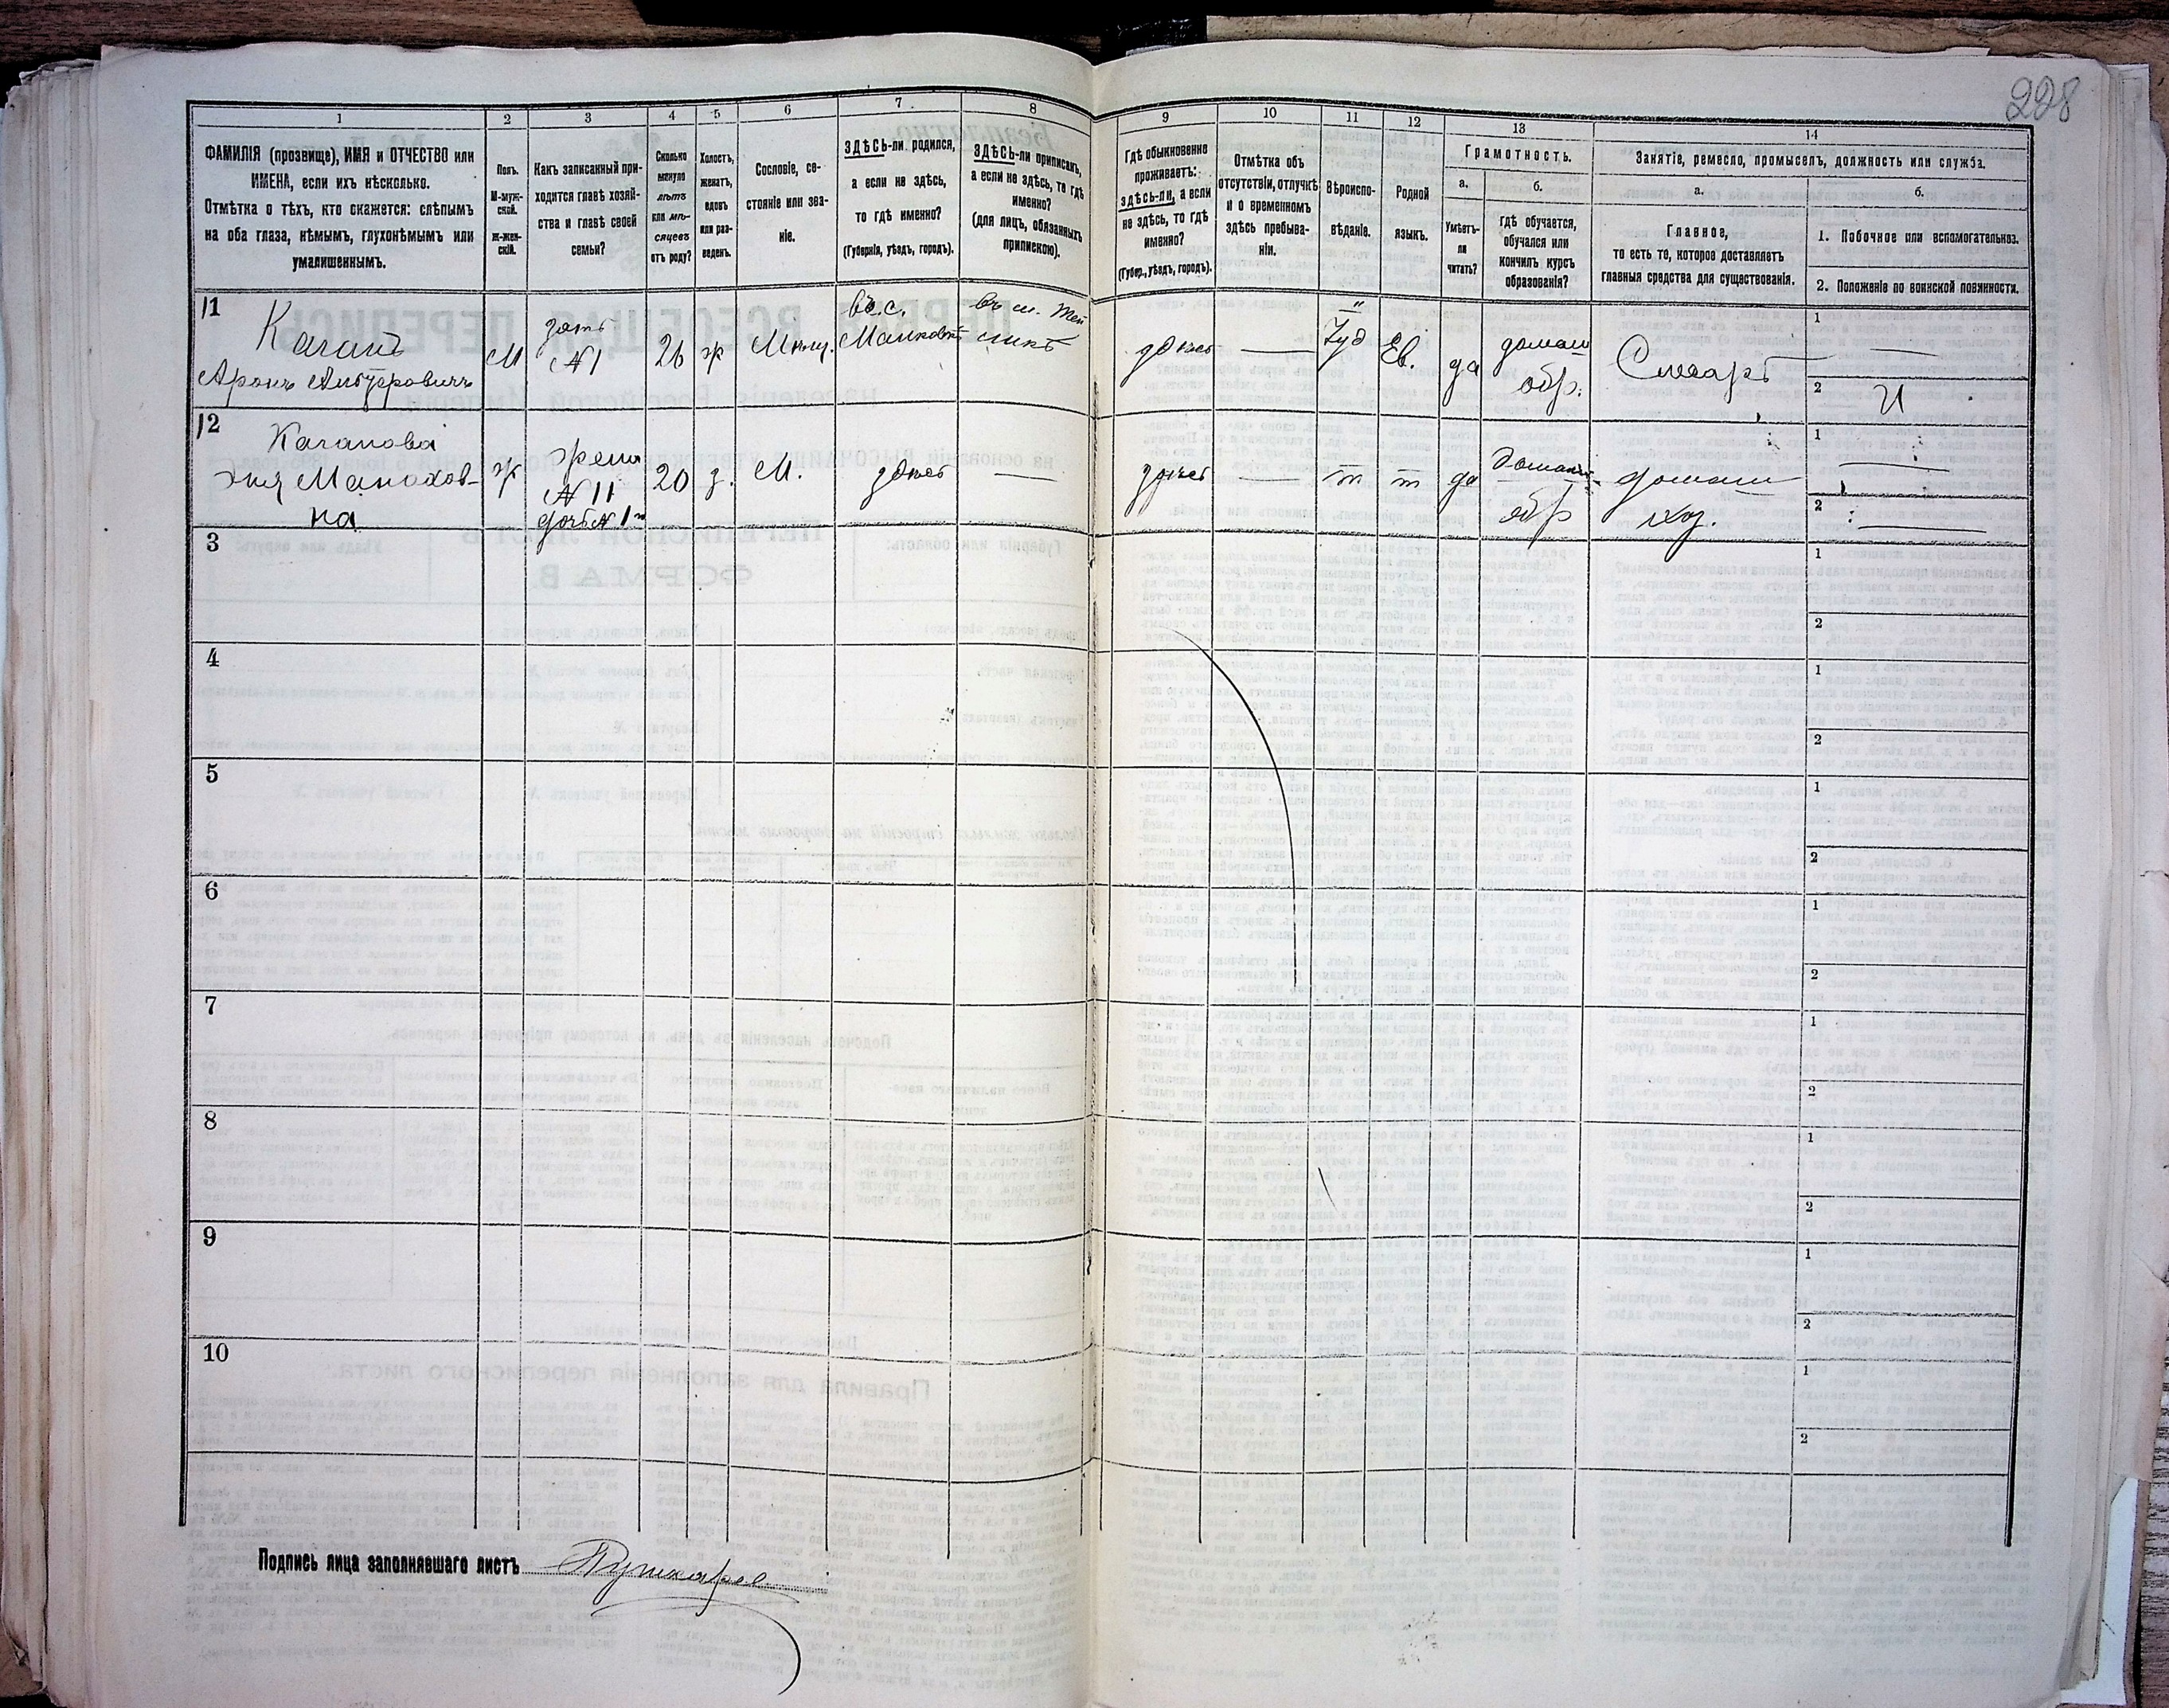 228
1
2
3
4
5
6
7
8
9
10
11
12
13
14
ФАМИЛІЯ (прозвище), ИМЯ и ОТЧЕСТВО или
ИМЕНА, если ихъ нѣсколько.
Отмѣтка о тѣхъ, кто окажется: слѣпымъ
на оба глаза, нѣмымъ, глухонѣмымъ или
умалишеннымъ.
Полъ.
М-муж-
ской.
Ж-жен-
скій.
Какъ записанный при-
ходится главѣ хозяй-
ства и главѣ своей
семьи?
Сколько
минуло
лѣтъ
или мѣ-
сяцевъ
отъ роду?
Холостъ,
женатъ,
вдовъ
или раз-
веденъ.
Сословіе, со-
стояніе или зва-
ніе.
ЗДѢСЬ-ли родился,
а если не здѣсь,
то гдѣ именно?
(Губернія, уѣздъ, городъ).
ЗДѢСЬ-ли приписанъ,
а если не здѣсь, то гдѣ
именно?
(для лицъ, обязанныхъ
припискою).
Гдѣ обыкновенно
проживаетъ:
здѣсь-ли, а если
не здѣсь, то гдѣ
именно?
(Губер., уѣздъ, городъ).
Отмѣтка объ
отсутствіи, отлучкѣ
и о временномъ
здѣсь пребыва-
ніи.
Вѣроиспо-
вѣданіе.
Родной
языкъ.
Грамотность.
а.
Умѣетъ-
ли
читать?
б.
гдѣ обучается,
обучался или
кончилъ курсъ
образованія?
Занятіе, ремесло, промыселъ, должность или служба.
а.
Главное,
то есть то, которое доставляетъ
главныя средства для существованія.
б.
1. Побочное или вспомогательное.
2. Положеніе по воинской повинности.
11
Каганъ
Аронъ
М
зять
№ 1
26
ж
Мѣщ.
въ с.
здѣсь
Іуд
Ев.
да
домаш
обр.
1
2
И
12
Каганова
на
ж
жена
№ 11
дочь № 1
20
з.
М.
здѣсь
здѣсь
т
т
да
обр
хоз.
1
2
3
1
2
4
1
2
5
1
2
6
1
2
7
1
2
8
1
2
9
1
2
10
1
2
Подпись лица заполнявшаго листъ